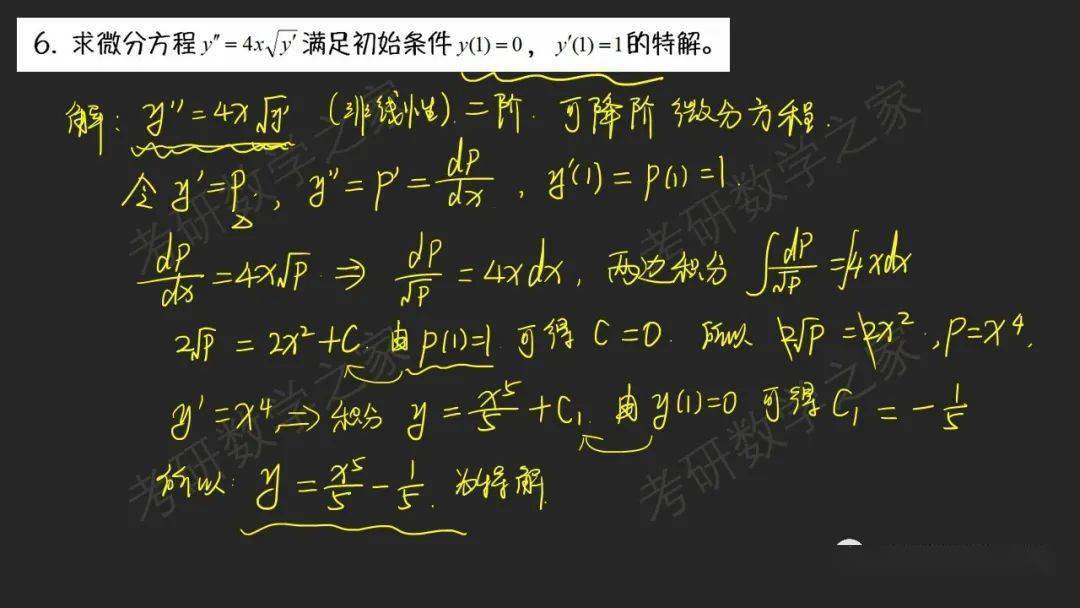 6. 求微分方程 y″ = 4x√y′ 满足初始条件 y(1) = 0， y′(1) = 1 的特解。
解: y″ = 4x√y′ (非线性) 二阶. 可降阶 微分方程.
令 y′ = p, y″ = p′ = dp/dx, y′(1) = p(1) = 1.
dp/dx = 4x√p ⇒ dp/√p = 4x dx, 两边积分 ∫dp/√p = ∫4x dx
2√p = 2x² + C. 由 p(1)=1 可得 C = 0. 所以 2√p = 2x², p = x⁴.
y′ = x⁴, ⇒ 积分 y = x⁵/5 + C₁. 由 y(1)=0 可得 C₁ = -1/5
所以: y = x⁵/5 - 1/5. 为特解.
考研数学之家
考研数学之家
考研数学之家
考研数学之家